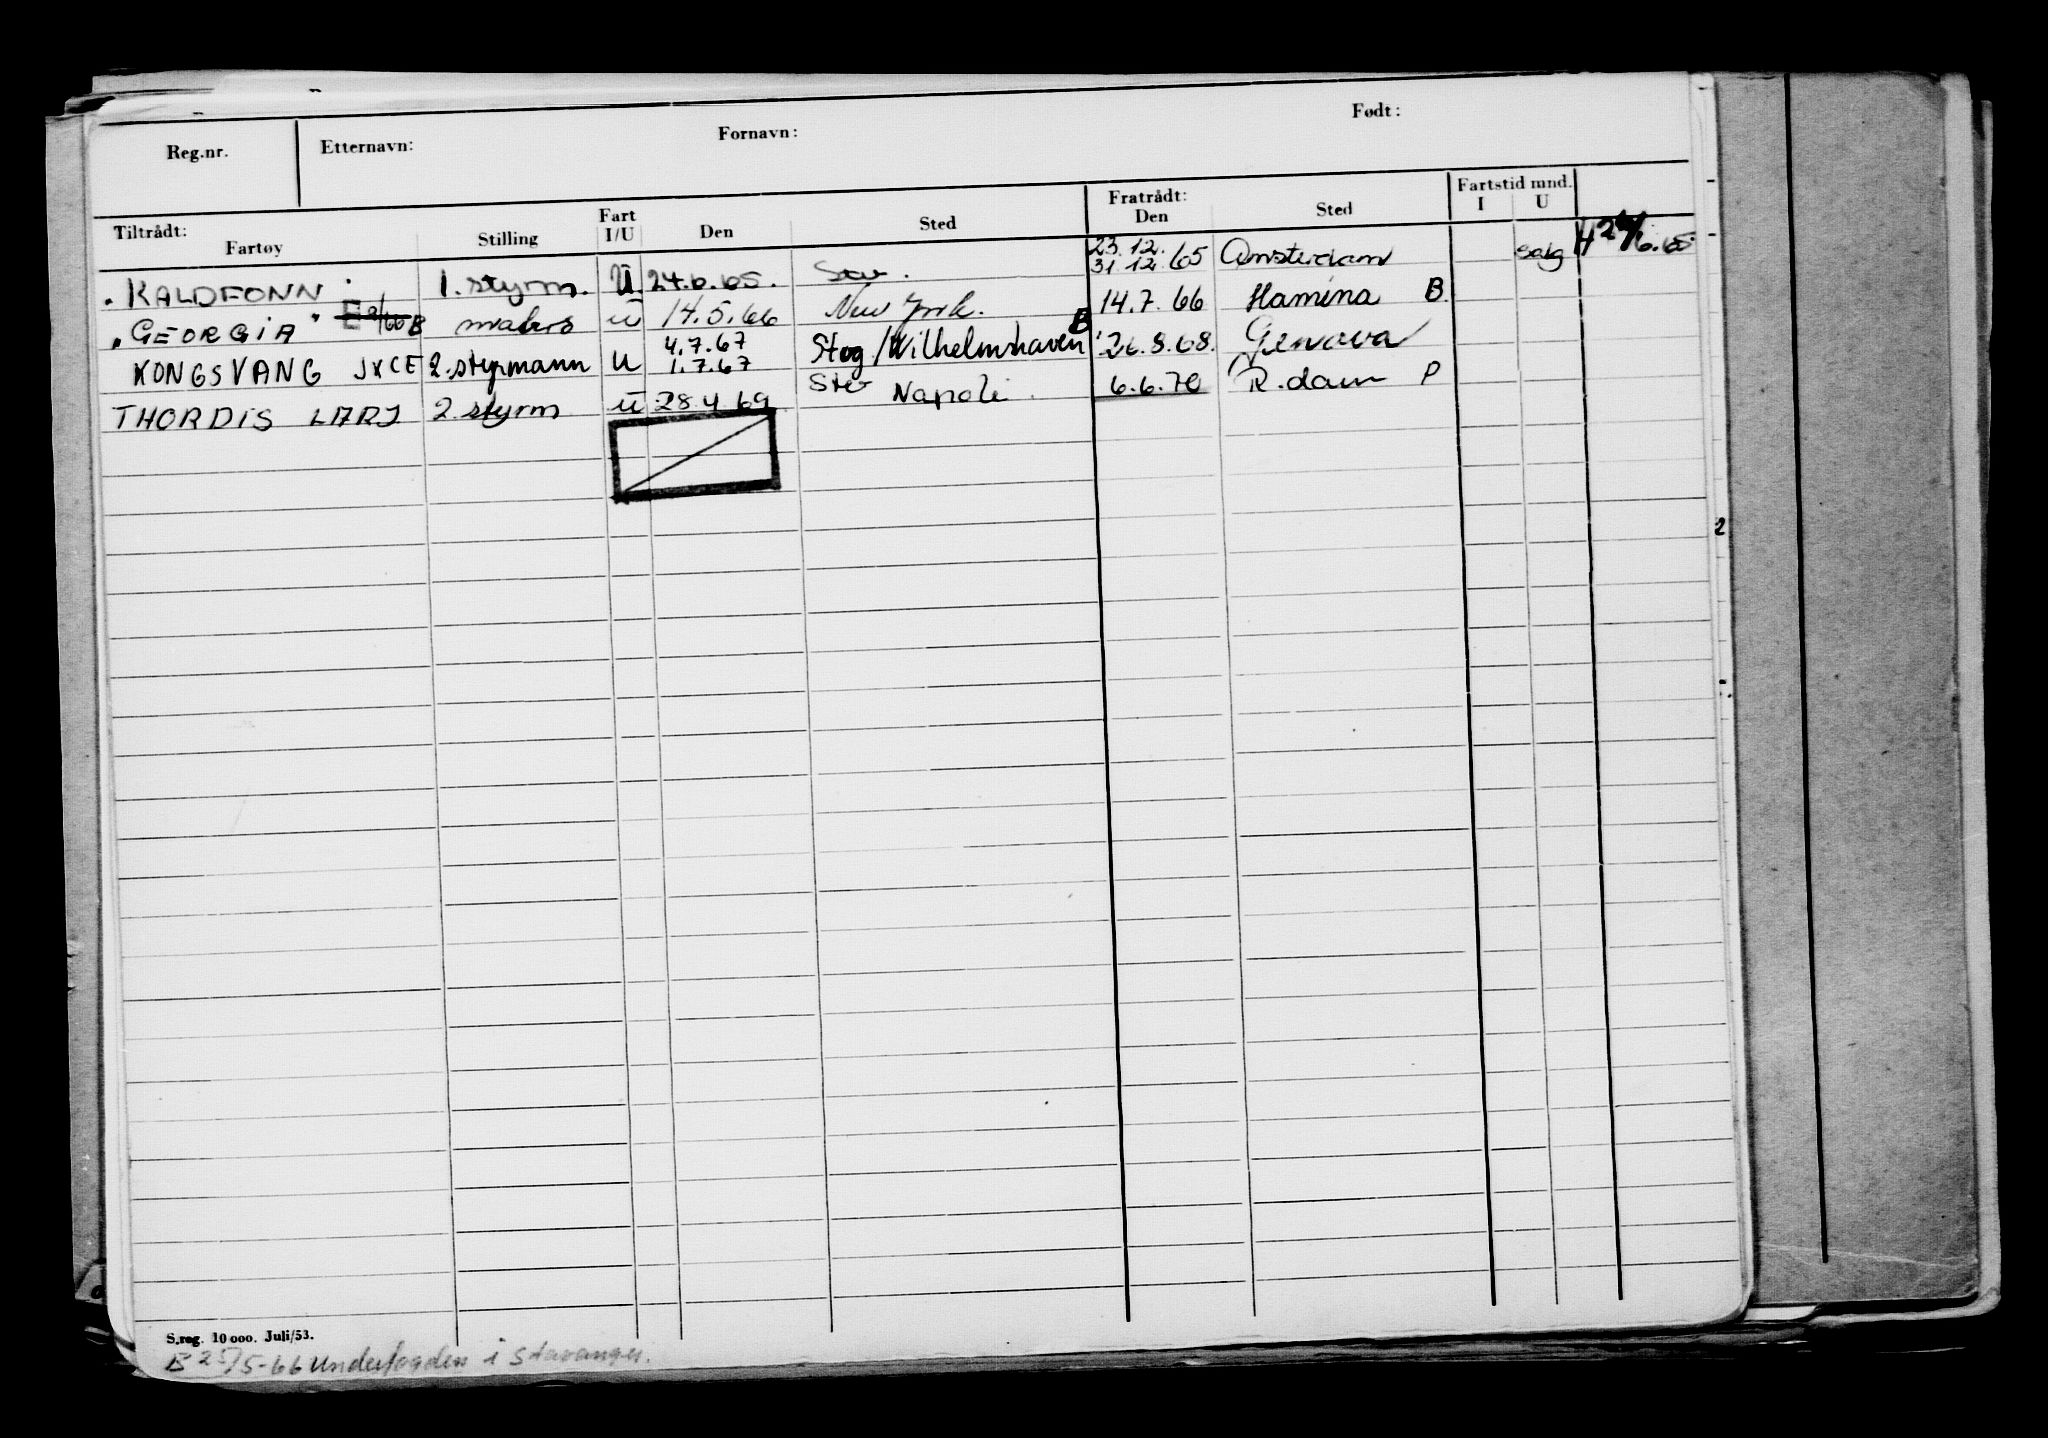 Reg.nr. Etternavn: Fornavn: Født:
Tiltrådt: Fartøy Stilling Fart I/U Den Sted Fratrådt: Den Sted Fartstid mnd. I U
"KALDFONN" 1. styrm. U 24.6.65. Stav. 23.12. 31.12.65 Amsterdam salg H 24/6.65.
"GEORGIA" matros U 14.5.66 New York. 14.7.66 Hamina B
KONGSVANG JXCE 2. styrmann U 4.7.67 1.7.67 Stvg/Wilhelmshaven B 26.8.68. Genova
THORDIS LARJ 2. styrm U 28.4.69 Stav Napoli. 6.6.70 R.dam P
S.reg. 10 000. Juli/53.
B 25/5-66 Underfogden i Stavanger.